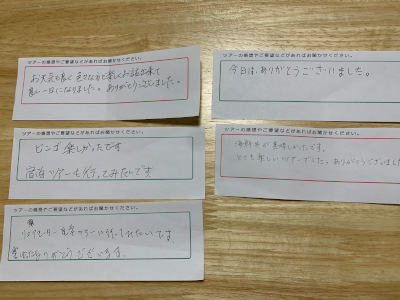 ツアーの感想やご要望などがあればお聞かせください。
お天気も良く 色々な方と楽しくお話出来て
良い一日になりました。ありがとうございました。
ツアーの感想やご要望などがあればお聞かせください。
今日は、ありがとうございました。
ツアーの感想やご要望などがあればお聞かせください。
ビンゴ 楽しかったです
宿泊ツアーも行ってみたいです
ツアーの感想やご要望などがあればお聞かせください。
海鮮丼が美味しかったです。
とても楽しいツアーでした。ありがとうございました
ツアーの感想やご要望などがあればお聞かせください。
ツアーに行ってみたいです。
ありがとうございます。